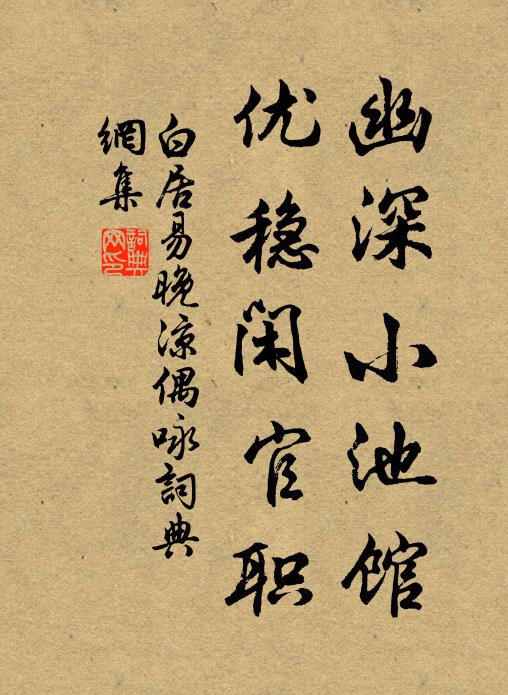 幽深小池馆
优稳闲官职
白居易晚涼偶咏詞典
網集
詞典
网印